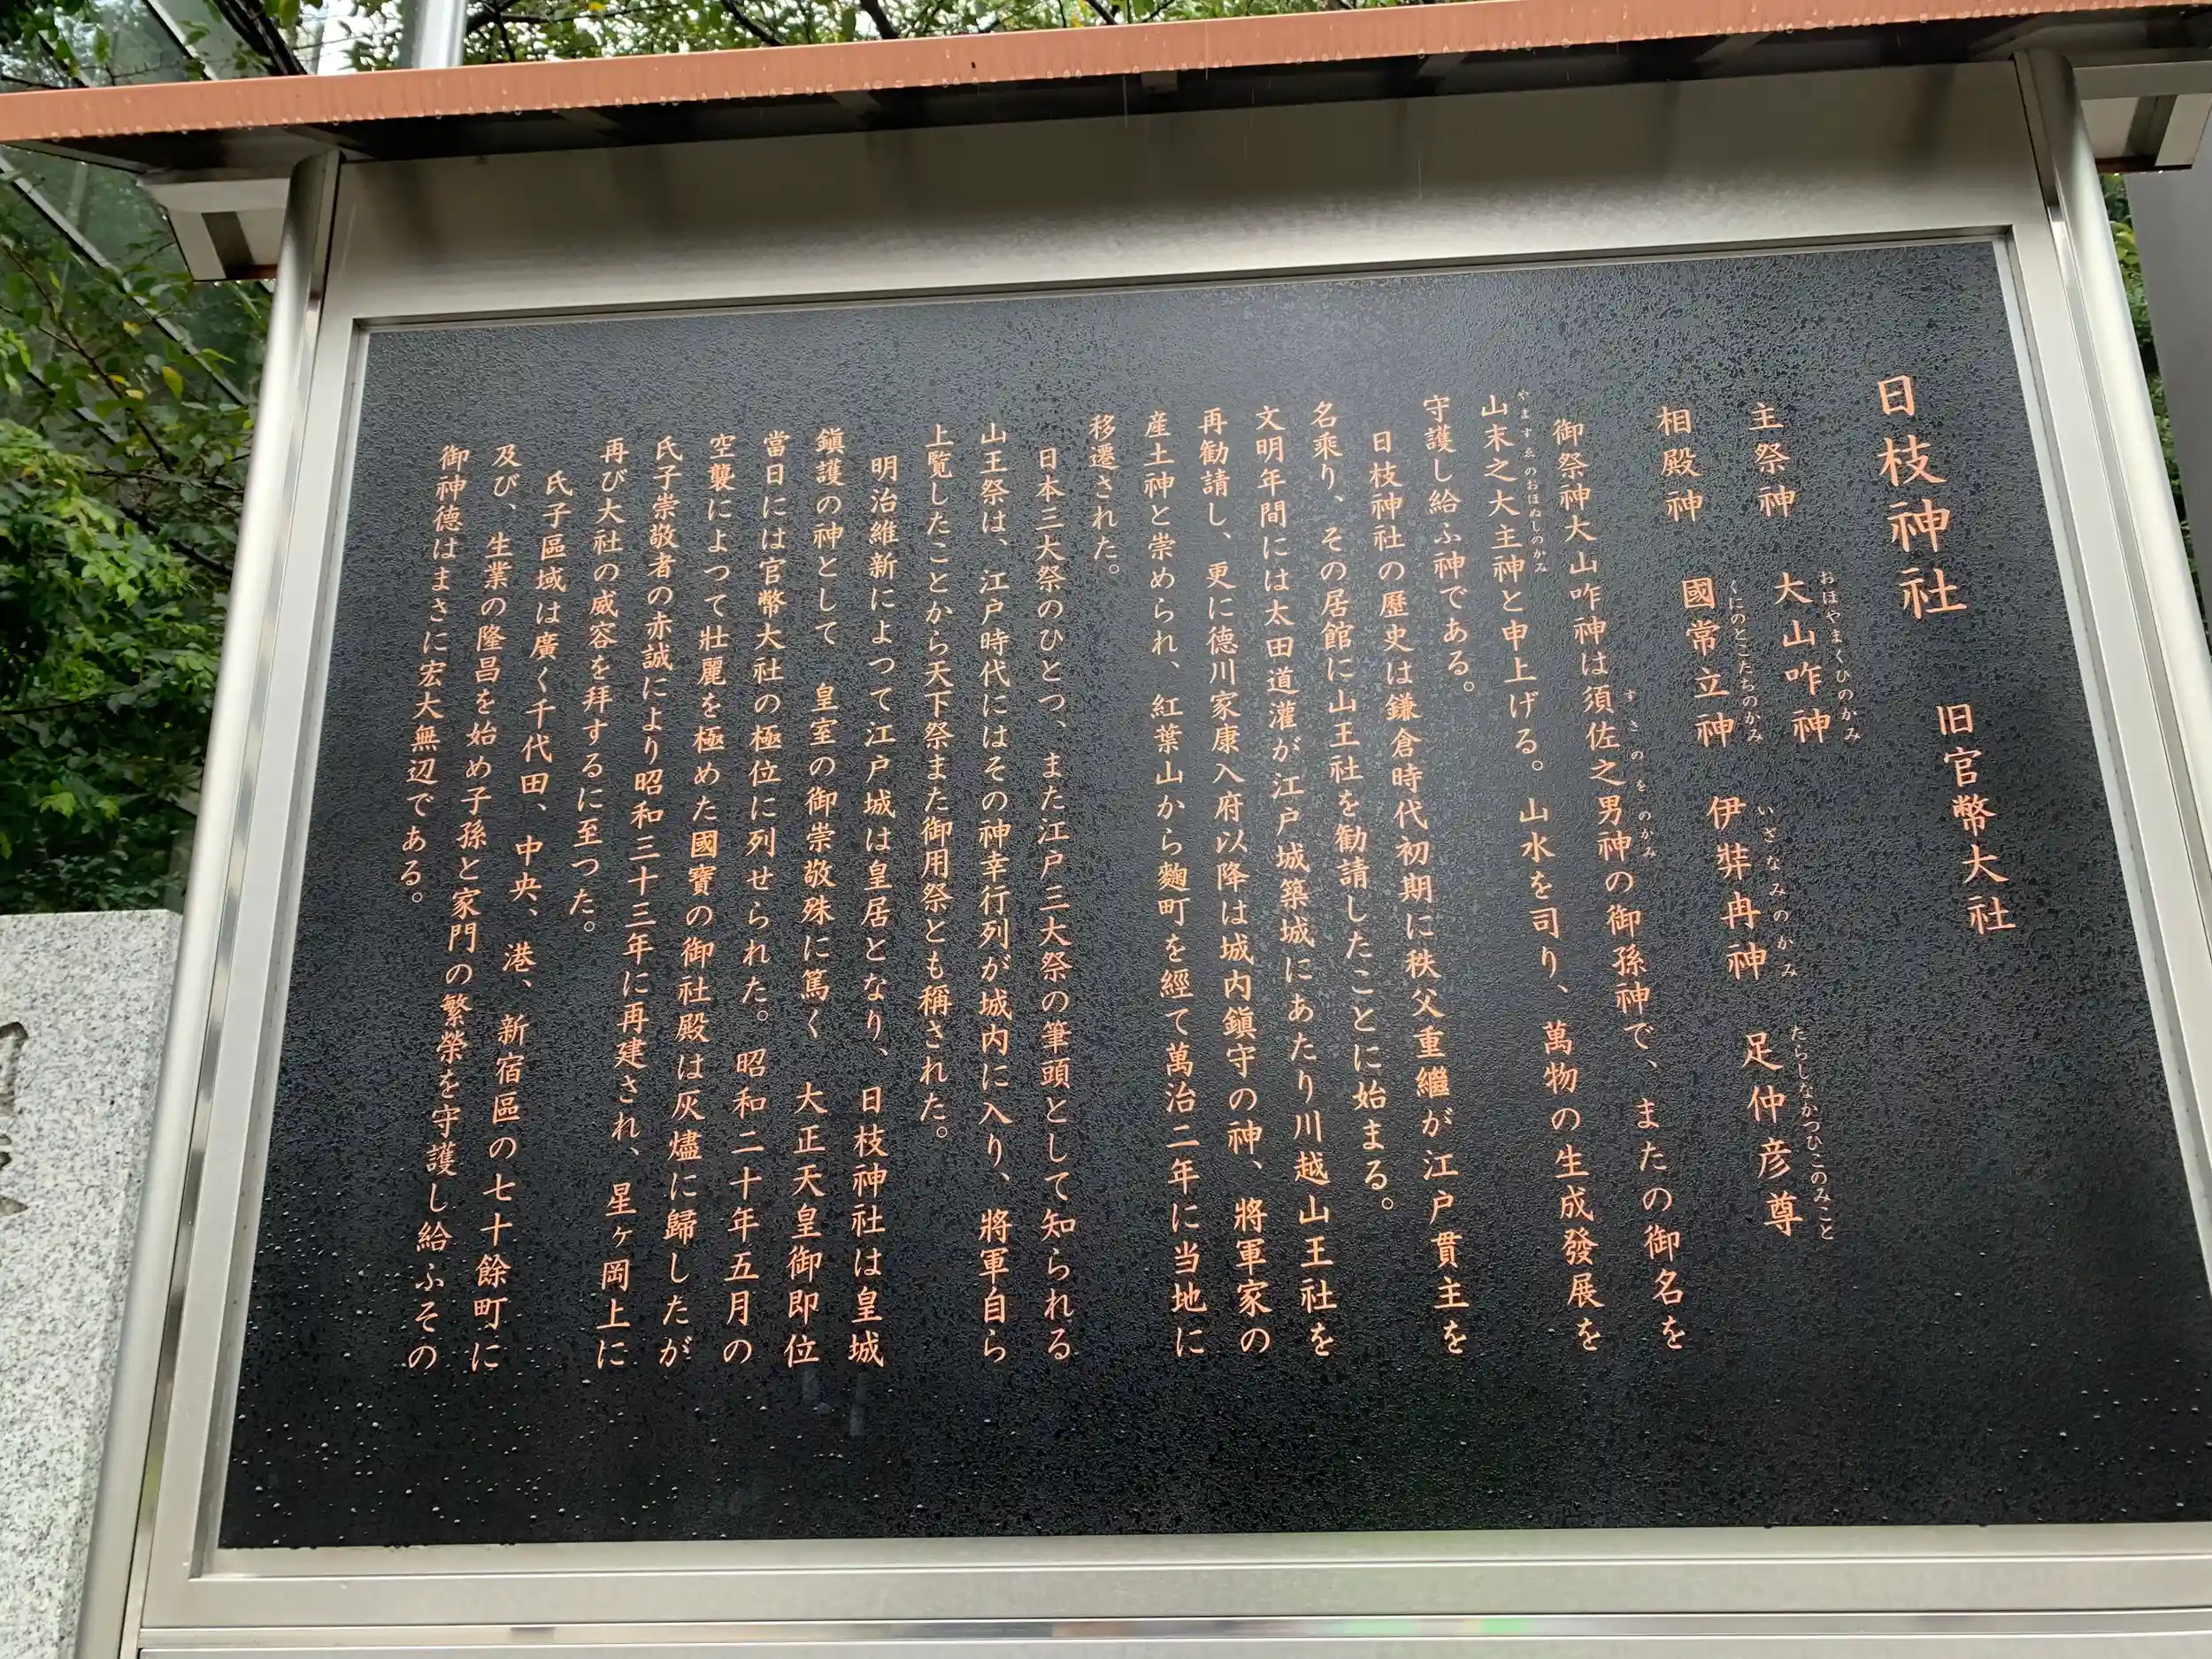 日枝神社 旧官幣大社
主祭神 大山咋神
おほやまくひのかみ
相殿神 國常立神 伊弉冉神 足仲彦尊
くにのとこたちのかみ いざなみのかみ たらしなかつひこのみこと
御祭神大山咋神は須佐之男神の御孫神で、またの御名を
すさのをのかみ
山末之大主神と申上げる。山水を司り、萬物の生成發展を
やますゑのおほぬしのかみ
守護し給ふ神である。
日枝神社の歴史は鎌倉時代初期に秩父重繼が江戸貫主を
名乘り、その居館に山王社を勧請したことに始まる。
文明年間には太田道灌が江戸城築城にあたり川越山王社を
再勧請し、更に徳川家康入府以降は城内鎭守の神、將軍家の
産土神と崇められ、紅葉山から麴町を經て萬治二年に当地に
移遷された。
日本三大祭のひとつ、また江戸三大祭の筆頭として知られる
山王祭は、江戸時代にはその神幸行列が城内に入り、將軍自ら
上覧したことから天下祭また御用祭とも稱された。
明治維新によつて江戸城は皇居となり、日枝神社は皇城
鎭護の神として 皇室の御崇敬殊に篤く 大正天皇御即位
當日には官幣大社の極位に列せられた。昭和二十年五月の
空襲によつて壯麗を極めた國寶の御社殿は灰燼に歸したが
氏子崇敬者の赤誠により昭和三十三年に再建され、星ヶ岡上に
再び大社の威容を拜するに至つた。
氏子區域は廣く千代田、中央、港、新宿區の七十餘町に
及び、生業の隆昌を始め子孫と家門の繁榮を守護し給ふその
御神德はまさに宏大無辺である。